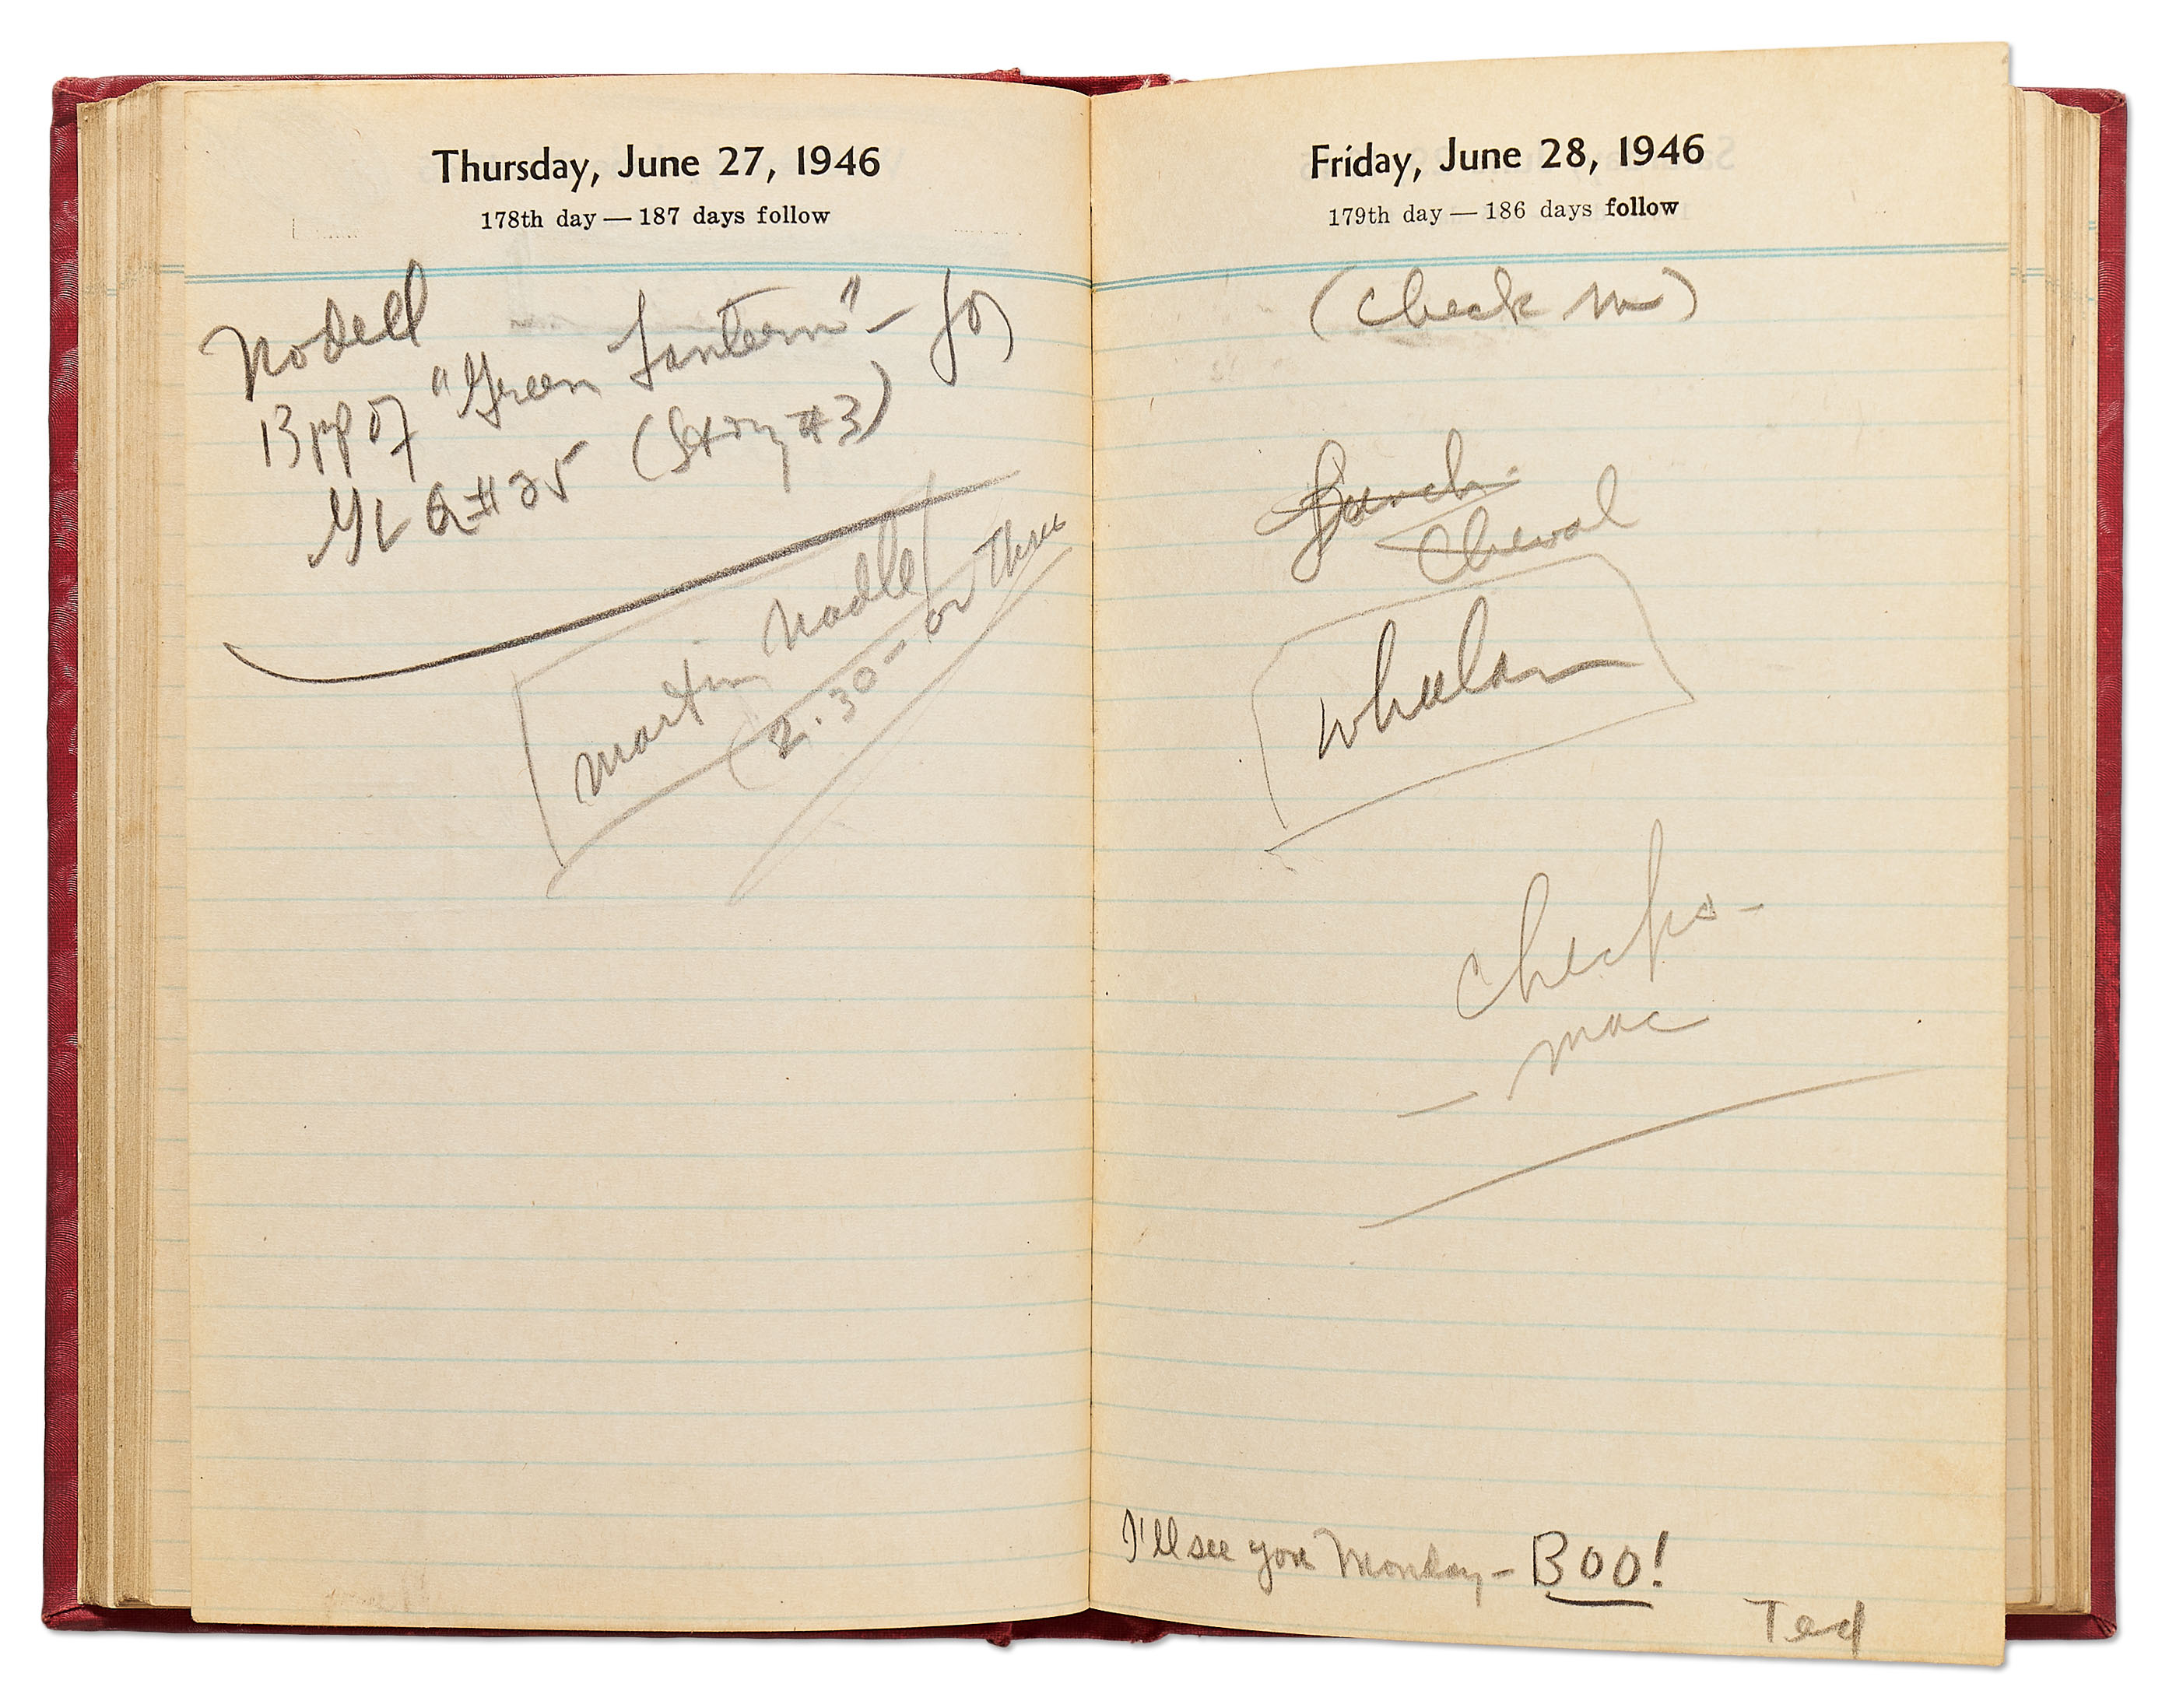 Thursday, June 27, 1946
178th day — 187 days follow
Nodell
13 pp of "Green Lantern" - for
GL Q #25 (Story #3)
Martin Nadle
(2:30 - on Thurs
Friday, June 28, 1946
179th day — 186 days follow
(Check in)
Lunch
Cheval
Whelan
Checks -
- Mac
I'll see you Monday - BOO!
Ted